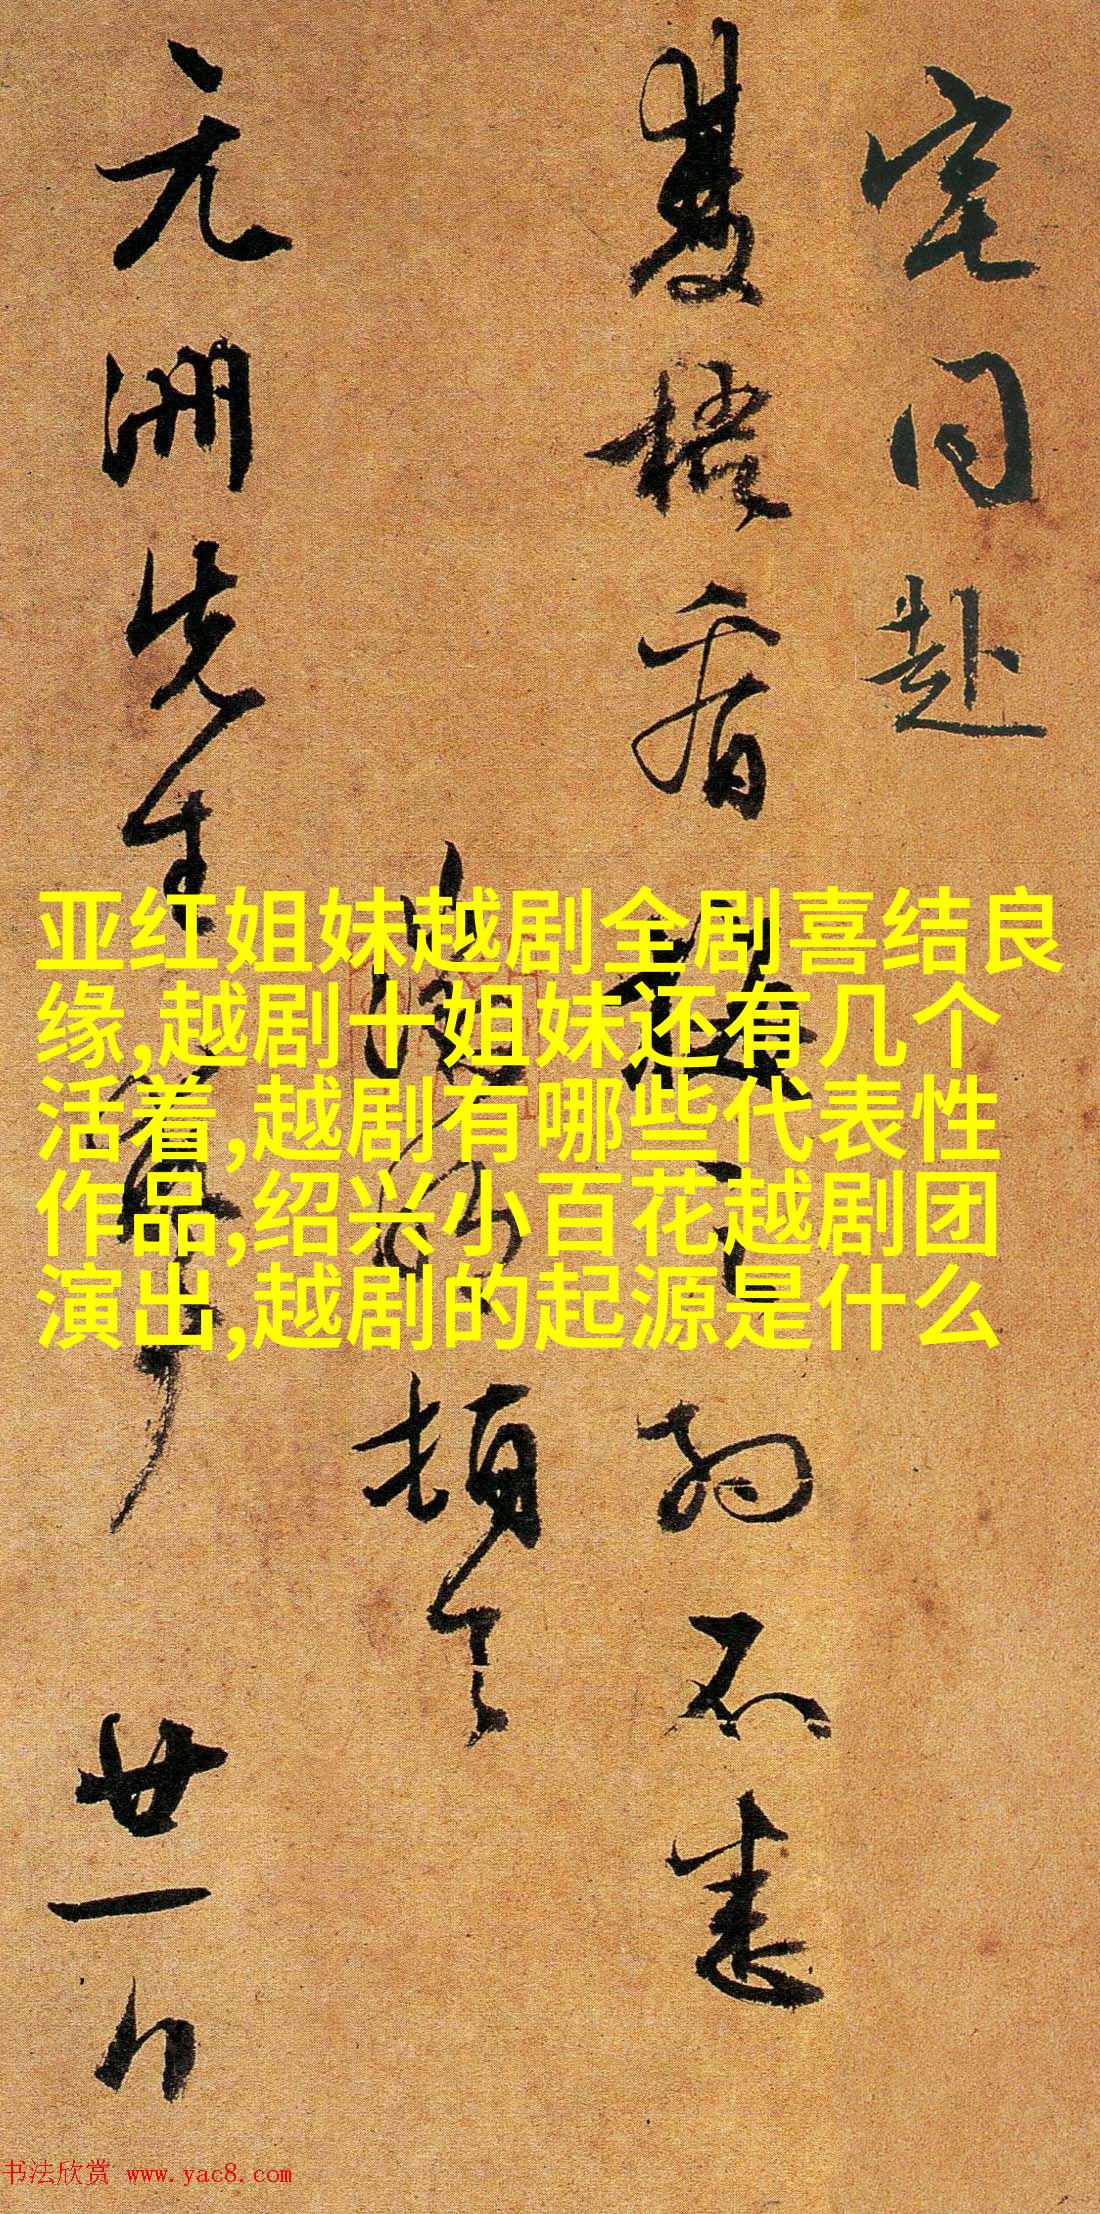 宅同赴
双梧看
约不悉
顿首
元洲先生
廿一日
亚红姐妹越剧全剧喜结良
缘,越剧十姐妹还有几个
活着,越剧有哪些代表性
作品,绍兴小百花越剧团
演出,越剧的起源是什么
书法欣赏 www.yac8.com